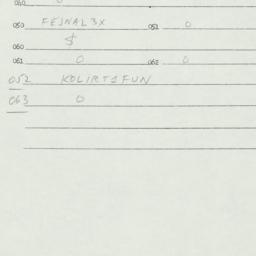 040 0
050 FEJNAL3X 051 0
060 $
061 0 062 0
052 KOLIRT1FUN
063 0